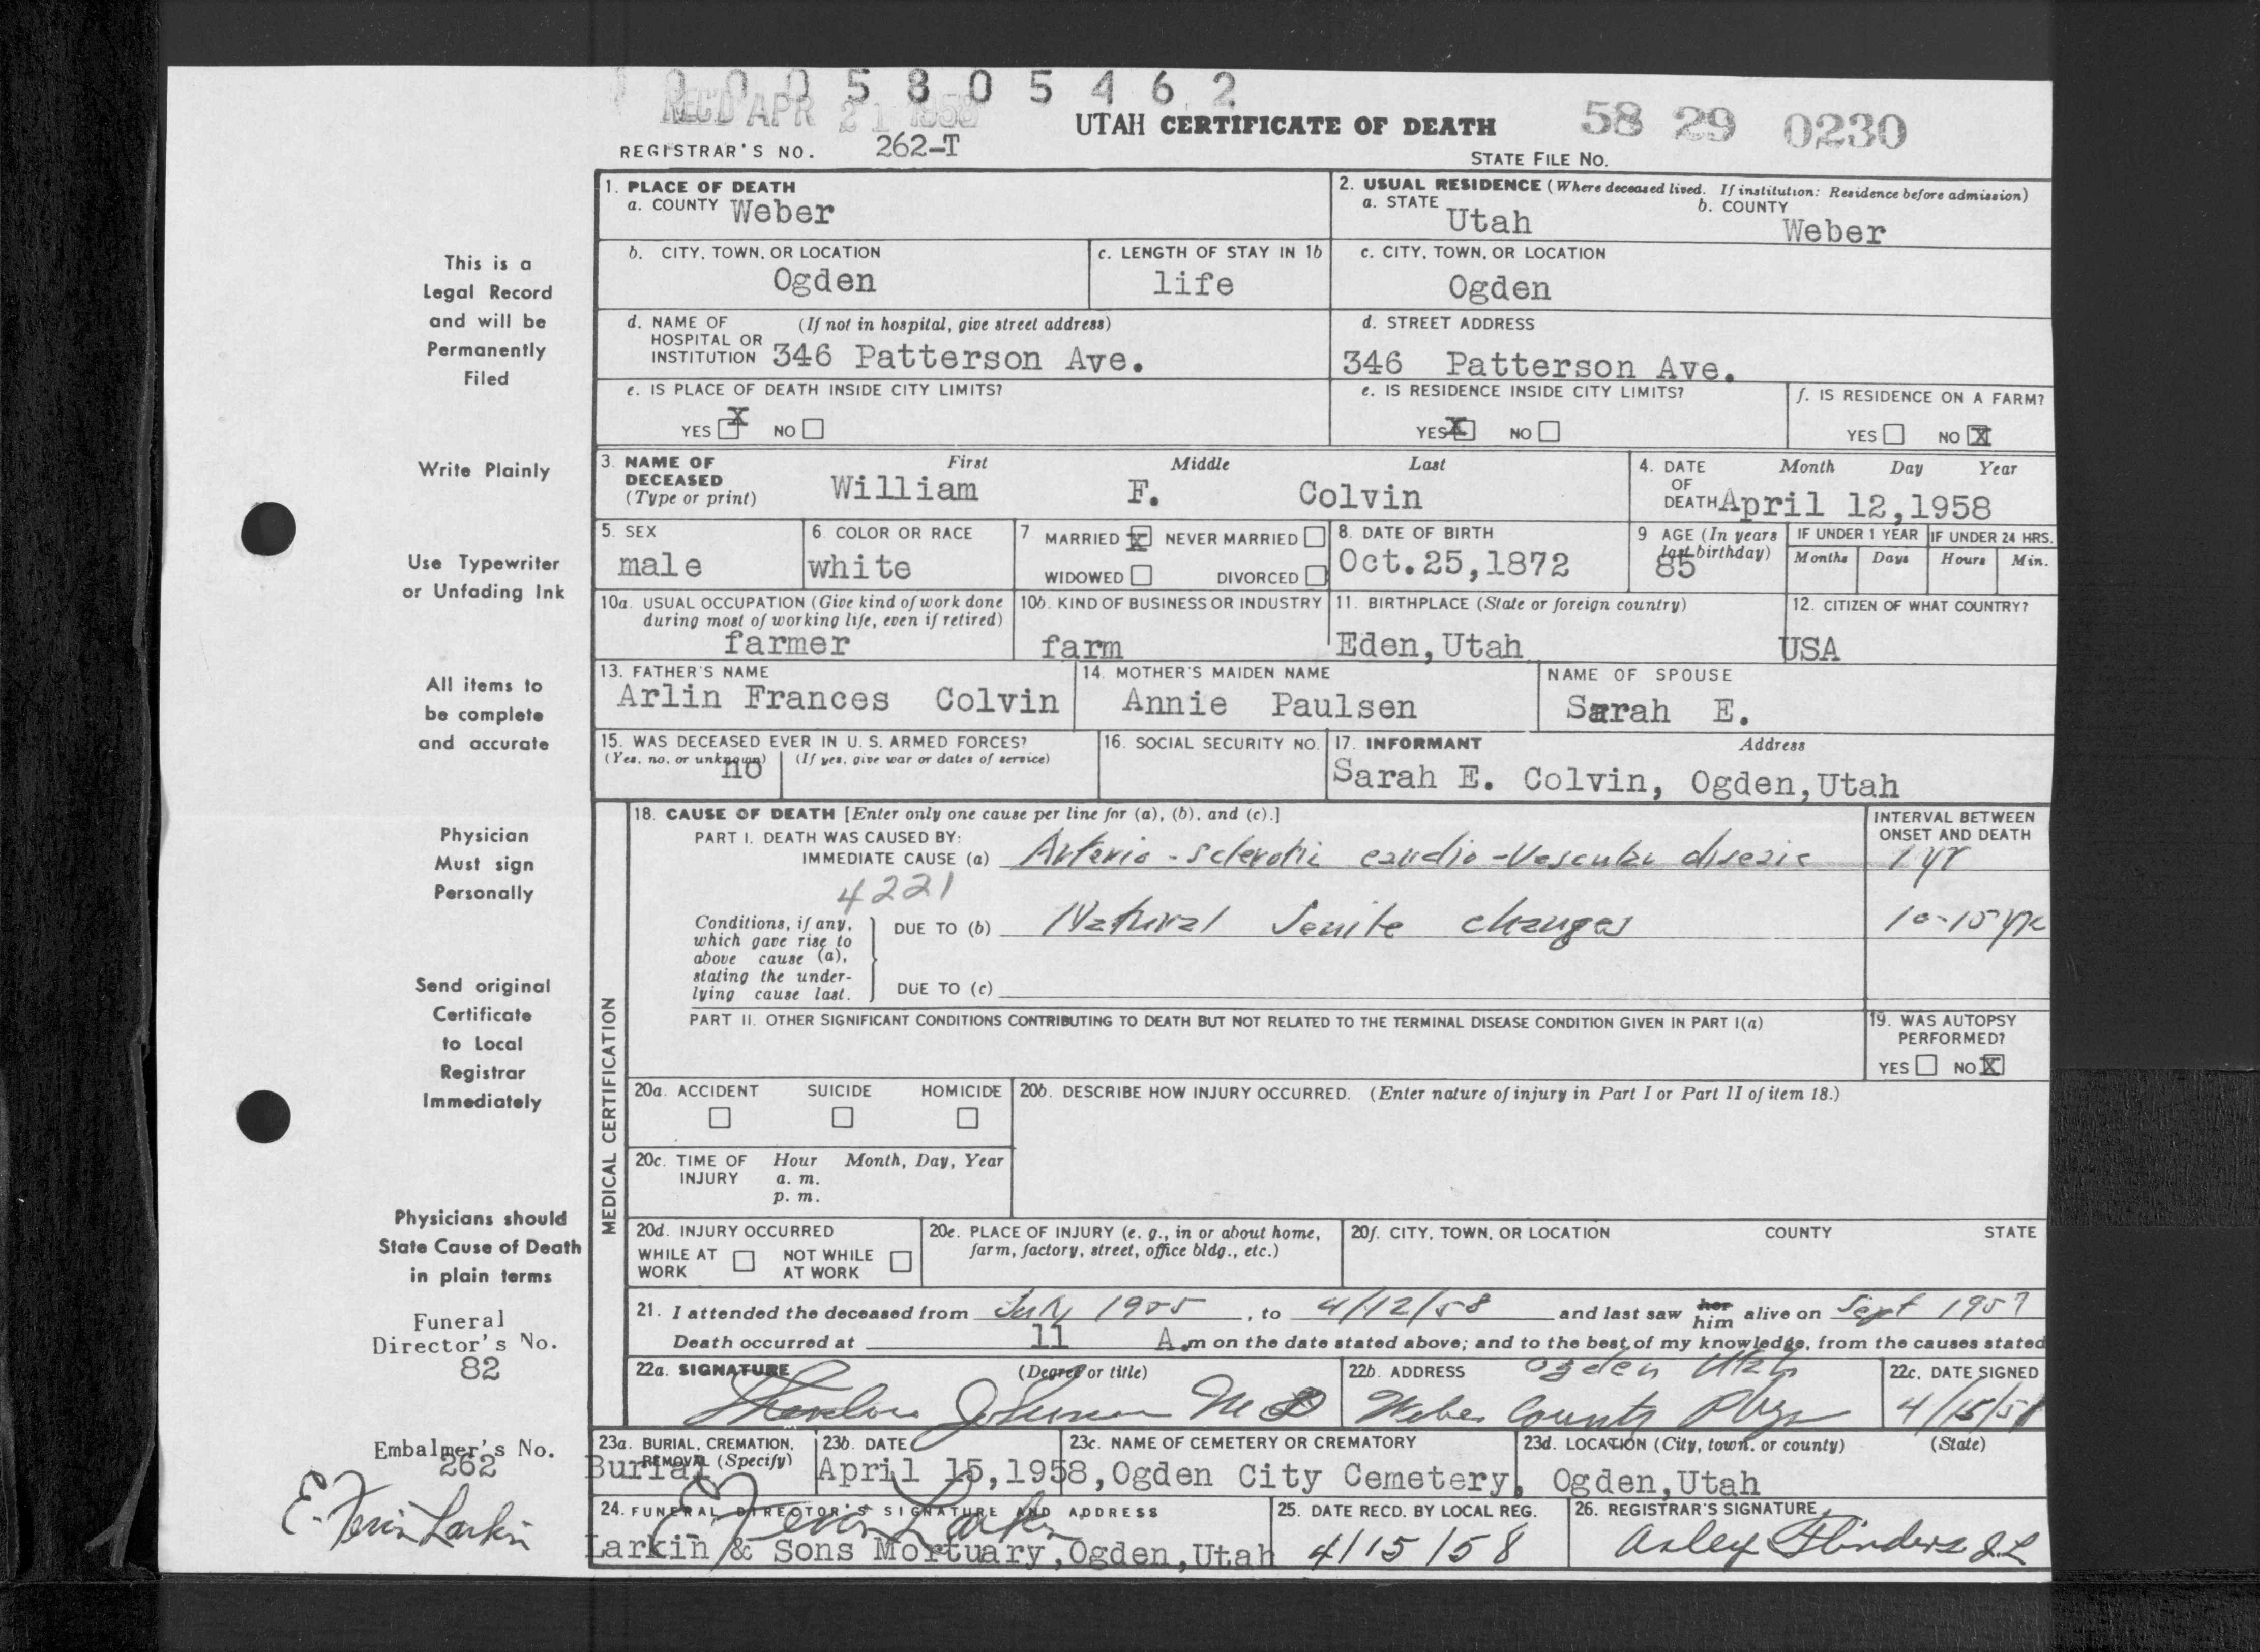 1005805462
REC'D APR 21 1958
UTAH CERTIFICATE OF DEATH 58 29 0230
REGISTRAR'S NO. 262-T
STATE FILE NO.
1. PLACE OF DEATH
a. COUNTY Weber
2. USUAL RESIDENCE (Where deceased lived. If institution: Residence before admission)
a. STATE Utah b. COUNTY Weber
b. CITY, TOWN, OR LOCATION Ogden
c. LENGTH OF STAY IN 1b life
c. CITY, TOWN, OR LOCATION Ogden
d. NAME OF HOSPITAL OR INSTITUTION (If not in hospital, give street address) 346 Patterson Ave.
d. STREET ADDRESS 346 Patterson Ave.
e. IS PLACE OF DEATH INSIDE CITY LIMITS?
YES X NO
e. IS RESIDENCE INSIDE CITY LIMITS?
YES X NO
f. IS RESIDENCE ON A FARM?
YES NO X
3. NAME OF DECEASED (Type or print) First Middle Last
William F. Colvin
4. DATE OF DEATH Month Day Year
April 12,1958
5. SEX male
6. COLOR OR RACE white
7. MARRIED X NEVER MARRIED
WIDOWED DIVORCED
8. DATE OF BIRTH Oct.25,1872
9 AGE (In years last birthday) 85
IF UNDER 1 YEAR Months Days
IF UNDER 24 HRS. Hours Min.
10a. USUAL OCCUPATION (Give kind of work done during most of working life, even if retired) farmer
10b. KIND OF BUSINESS OR INDUSTRY farm
11. BIRTHPLACE (State or foreign country) Eden,Utah
12. CITIZEN OF WHAT COUNTRY? USA
13. FATHER'S NAME Arlin Frances Colvin
14. MOTHER'S MAIDEN NAME Annie Paulsen
NAME OF SPOUSE Sarah E.
15. WAS DECEASED EVER IN U. S. ARMED FORCES?
(Yes, no, or unknown) no (If yes, give war or dates of service)
16. SOCIAL SECURITY NO.
17. INFORMANT Address
Sarah E. Colvin, Ogden,Utah
18. CAUSE OF DEATH [Enter only one cause per line for (a), (b), and (c).]
INTERVAL BETWEEN ONSET AND DEATH
PART I. DEATH WAS CAUSED BY:
IMMEDIATE CAUSE (a) Arterio-sclerotic cardio-vascular disease 1 yr
4221
Conditions, if any, which gave rise to above cause (a), stating the underlying cause last.
DUE TO (b) Natural Senile changes 10-15 yrs
DUE TO (c)
PART II. OTHER SIGNIFICANT CONDITIONS CONTRIBUTING TO DEATH BUT NOT RELATED TO THE TERMINAL DISEASE CONDITION GIVEN IN PART I(a)
19. WAS AUTOPSY PERFORMED?
YES NO X
MEDICAL CERTIFICATION
20a. ACCIDENT SUICIDE HOMICIDE
20b. DESCRIBE HOW INJURY OCCURRED. (Enter nature of injury in Part I or Part II of item 18.)
20c. TIME OF INJURY Hour Month, Day, Year
a. m.
p. m.
20d. INJURY OCCURRED
WHILE AT WORK NOT WHILE AT WORK
20e. PLACE OF INJURY (e. g., in or about home, farm, factory, street, office bldg., etc.)
20f. CITY, TOWN, OR LOCATION COUNTY STATE
21. I attended the deceased from July 1955, to 4/12/58 and last saw her him alive on Sept 1957
Death occurred at 11 A.m on the date stated above; and to the best of my knowledge, from the causes stated
22a. SIGNATURE (Degree or title)
Theodore Johnson MD
22b. ADDRESS Ogden Utah
Weber County Phys
22c. DATE SIGNED 4/15/58
23a. BURIAL, CREMATION, REMOVAL (Specify) Burial
23b. DATE April 15,1958,
23c. NAME OF CEMETERY OR CREMATORY Ogden City Cemetery,
23d. LOCATION (City, town, or county) (State) Ogden,Utah
24. FUNERAL DIRECTOR'S SIGNATURE AND ADDRESS
Larkin & Sons Mortuary,Ogden,Utah
25. DATE RECD. BY LOCAL REG. 4/15/58
26. REGISTRAR'S SIGNATURE
This is a
Legal Record
and will be
Permanently
Filed
Write Plainly
Use Typewriter
or Unfading Ink
All items to
be complete
and accurate
Physician
Must sign
Personally
Send original
Certificate
to Local
Registrar
Immediately
Physicians should
State Cause of Death
in plain terms
Funeral
Director's No.
82
Embalmer's No.
262
Larkin